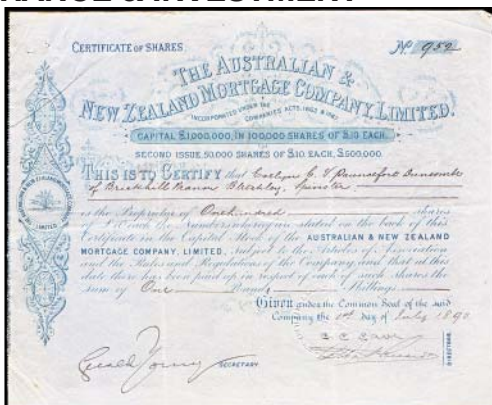 RANCE & INVESTMENT
CERTIFICATE OF SHARES.
No. 952
THE AUSTRALIAN &
NEW ZEALAND MORTGAGE COMPANY, LIMITED.
INCORPORATED UNDER THE
COMPANIES ACTS,
CAPITAL £1,000,000, IN 100,000 SHARES OF £10 EACH.
SECOND ISSUE, 50,000 SHARES OF £10 EACH, £500,000.
THIS IS TO CERTIFY that
of Brickhill Manor Bletchley, Spinster
is the Proprietor of One hundred shares
of £10 each the Numbers whereof are stated on the back of this
Certificate in the Capital Stock of the AUSTRALIAN & NEW ZEALAND
MORTGAGE COMPANY, LIMITED, subject to the Articles of Association
and the Rules and Regulations of the Company and that at this
date there has been paid up in respect of each of such shares the
sum of One Pounds Shillings
Given under the Common Seal of the said
Company the day of July 1890
DIRECTORS.
SECRETARY
LIMITED